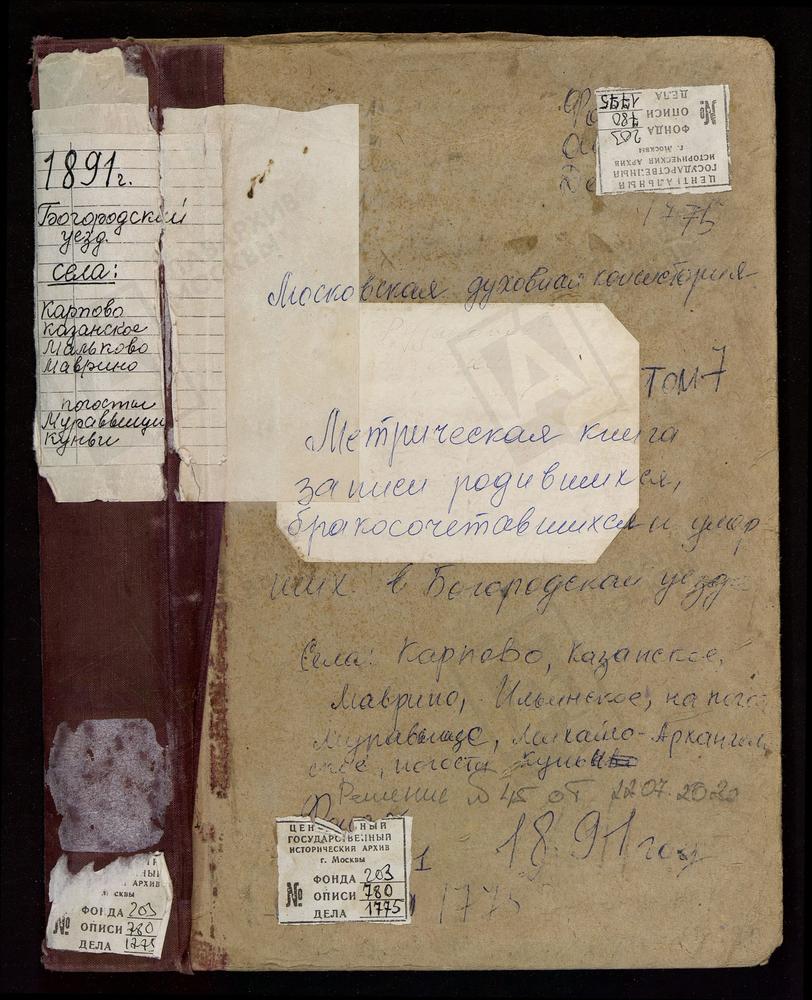 1891г.
Богородский
уезд.
села:
Карпово
Казанское
Мальково
Маврино
погосты
Муравьищи
Куньи
ЦЕНТРАЛЬНЫЙ
ГОСУДАРСТВЕННЫЙ
ИСТОРИЧЕСКИЙ АРХИВ
г. Москвы
ФОНДА 203
№ ОПИСИ 780
ДЕЛА 1775
1775
Московская духовная консистория
Том 7
Метрическая книга
записи родившихся,
бракосочетавшихся и умер
ших в Богородском уезде
Села: Карпово, Казанское,
Маврино, Ильинское, на погос
Михайло-Архангель
ское, погоста Куньи
Решение № 45 от 22.07.2020
1891 год
ЦЕН НЫЙ
ГОСУДАРСТВЕННЫЙ
ИСТОРИЧЕСКИЙ АРХИВ
г. Москвы
ФОНДА 203
№ ОПИСИ 780
ДЕЛА 1775
1
1775
АРХИВ
СКВЫ
ФОНДА 203
№ ОПИСИ 780
ДЕЛА 1775